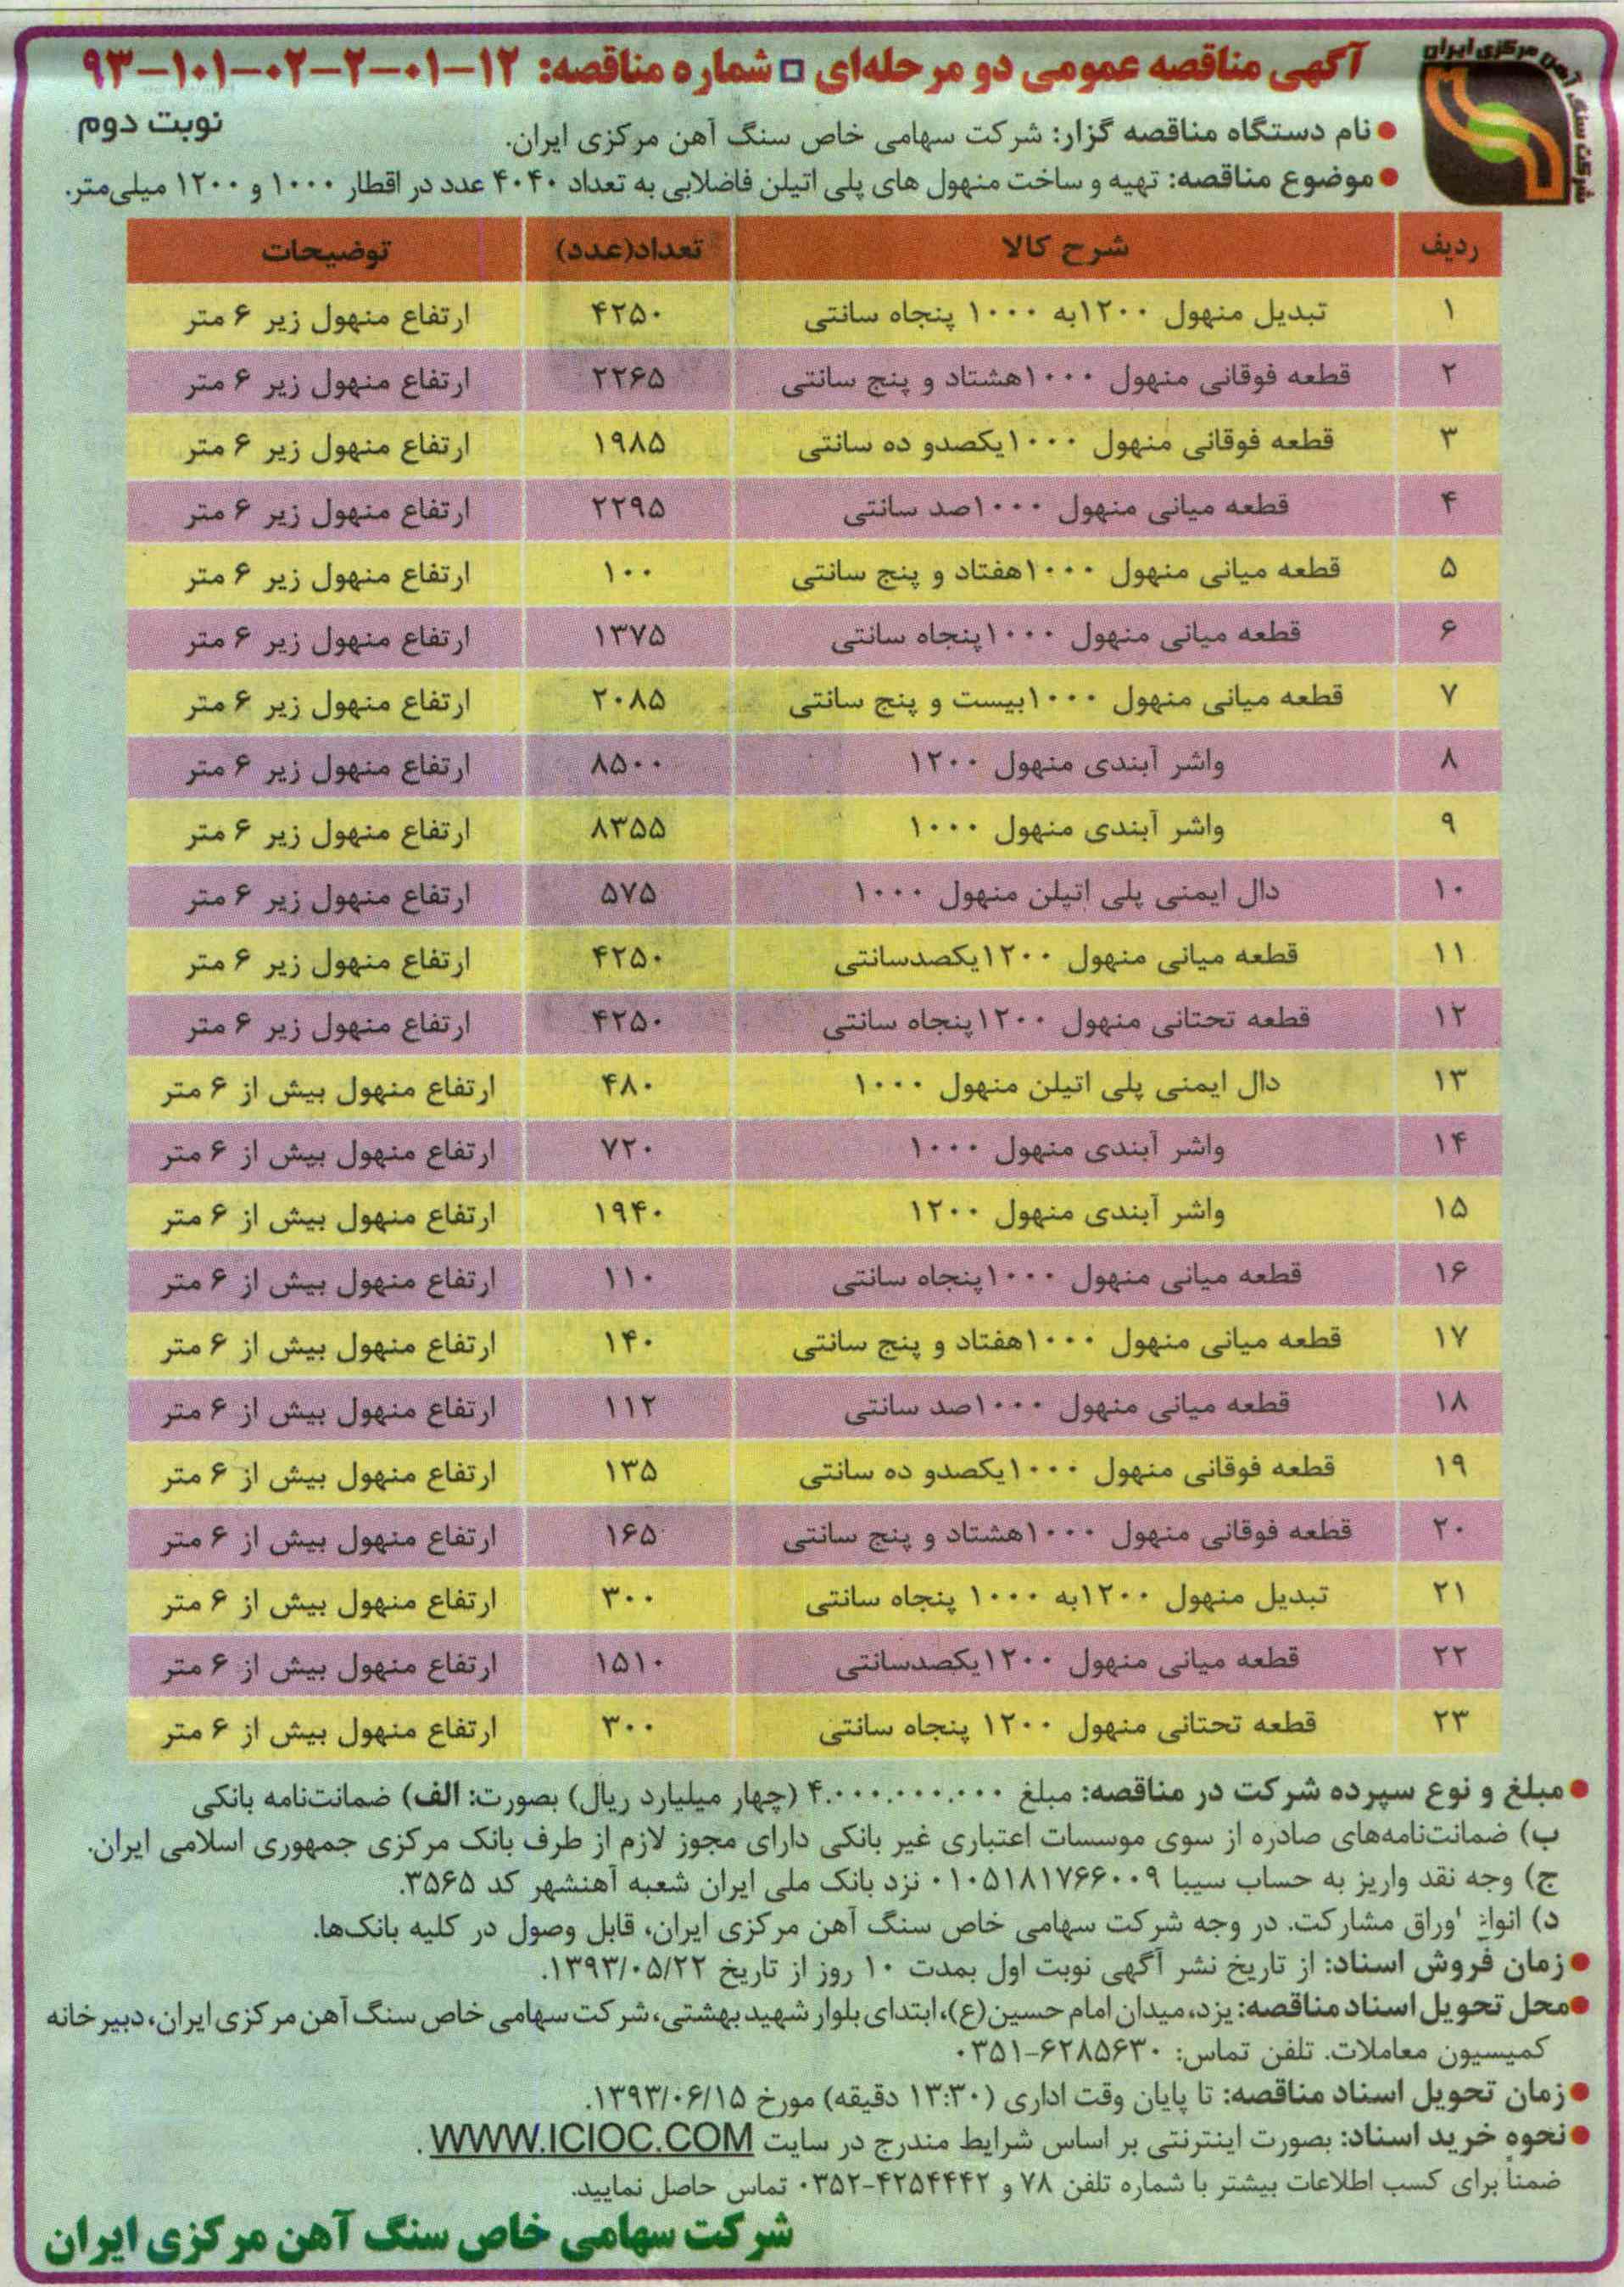 شرکت سنگ آهن مرکزی ایران
آگهی مناقصه عمومی دو مرحله‌ای □ شماره مناقصه: ۱۲-۰۱-۲-۰۲-۱۰۱-۹۳
نوبت دوم
● نام دستگاه مناقصه گزار: شرکت سهامی خاص سنگ آهن مرکزی ایران.
● موضوع مناقصه: تهیه و ساخت منهول های پلی اتیلن فاضلابی به تعداد ۴۰۴۰ عدد در اقطار ۱۰۰۰ و ۱۲۰۰ میلی‌متر.
ردیف شرح کالا تعداد(عدد) توضیحات
۱ تبدیل منهول ۱۲۰۰به ۱۰۰۰ پنجاه سانتی ۴۲۵۰ ارتفاع منهول زیر ۶ متر
۲ قطعه فوقانی منهول ۱۰۰۰هشتاد و پنج سانتی ۲۲۶۵ ارتفاع منهول زیر ۶ متر
۳ قطعه فوقانی منهول ۱۰۰۰یکصدو ده سانتی ۱۹۸۵ ارتفاع منهول زیر ۶ متر
۴ قطعه میانی منهول ۱۰۰۰صد سانتی ۲۲۹۵ ارتفاع منهول زیر ۶ متر
۵ قطعه میانی منهول ۱۰۰۰هفتاد و پنج سانتی ۱۰۰ ارتفاع منهول زیر ۶ متر
۶ قطعه میانی منهول ۱۰۰۰پنجاه سانتی ۱۳۷۵ ارتفاع منهول زیر ۶ متر
۷ قطعه میانی منهول ۱۰۰۰بیست و پنج سانتی ۲۰۸۵ ارتفاع منهول زیر ۶ متر
۸ واشر آبندی منهول ۱۲۰۰ ۸۵۰۰ ارتفاع منهول زیر ۶ متر
۹ واشر آبندی منهول ۱۰۰۰ ۸۳۵۵ ارتفاع منهول زیر ۶ متر
۱۰ دال ایمنی پلی اتیلن منهول ۱۰۰۰ ۵۷۵ ارتفاع منهول زیر ۶ متر
۱۱ قطعه میانی منهول ۱۲۰۰یکصدسانتی ۴۲۵۰ ارتفاع منهول زیر ۶ متر
۱۲ قطعه تحتانی منهول ۱۲۰۰پنجاه سانتی ۴۲۵۰ ارتفاع منهول زیر ۶ متر
۱۳ دال ایمنی پلی اتیلن منهول ۱۰۰۰ ۴۸۰ ارتفاع منهول بیش از ۶ متر
۱۴ واشر آبندی منهول ۱۰۰۰ ۷۲۰ ارتفاع منهول بیش از ۶ متر
۱۵ واشر آبندی منهول ۱۲۰۰ ۱۹۴۰ ارتفاع منهول بیش از ۶ متر
۱۶ قطعه میانی منهول ۱۰۰۰پنجاه سانتی ۱۱۰ ارتفاع منهول بیش از ۶ متر
۱۷ قطعه میانی منهول ۱۰۰۰هفتاد و پنج سانتی ۱۴۰ ارتفاع منهول بیش از ۶ متر
۱۸ قطعه میانی منهول ۱۰۰۰صد سانتی ۱۱۲ ارتفاع منهول بیش از ۶ متر
۱۹ قطعه فوقانی منهول ۱۰۰۰یکصدو ده سانتی ۱۳۵ ارتفاع منهول بیش از ۶ متر
۲۰ قطعه فوقانی منهول ۱۰۰۰هشتاد و پنج سانتی ۱۶۵ ارتفاع منهول بیش از ۶ متر
۲۱ تبدیل منهول ۱۲۰۰به ۱۰۰۰ پنجاه سانتی ۳۰۰ ارتفاع منهول بیش از ۶ متر
۲۲ قطعه میانی منهول ۱۲۰۰یکصدسانتی ۱۵۱۰ ارتفاع منهول بیش از ۶ متر
۲۳ قطعه تحتانی منهول ۱۲۰۰ پنجاه سانتی ۳۰۰ ارتفاع منهول بیش از ۶ متر
● مبلغ و نوع سپرده شرکت در مناقصه: مبلغ ۴.۰۰۰.۰۰۰.۰۰۰ (چهار میلیارد ریال) بصورت: الف) ضمانت‌نامه بانکی
ب) ضمانت‌نامه‌های صادره از سوی موسسات اعتباری غیر بانکی دارای مجوز لازم از طرف بانک مرکزی جمهوری اسلامی ایران.
ج) وجه نقد واریز به حساب سیبا ۰۱۰۵۱۸۱۷۶۶۰۰۹ نزد بانک ملی ایران شعبه آهنشهر کد ۳۵۶۵.
د) انواع اوراق مشارکت. در وجه شرکت سهامی خاص سنگ آهن مرکزی ایران، قابل وصول در کلیه بانک‌ها.
● زمان فروش اسناد: از تاریخ نشر آگهی نوبت اول بمدت ۱۰ روز از تاریخ ۱۳۹۳/۰۵/۲۲.
● محل تحویل اسناد مناقصه: یزد، میدان امام حسین(ع)، ابتدای بلوار شهید بهشتی، شرکت سهامی خاص سنگ آهن مرکزی ایران، دبیرخانه
کمیسیون معاملات. تلفن تماس: ۶۲۸۵۶۳۰-۰۳۵۱
● زمان تحویل اسناد مناقصه: تا پایان وقت اداری (۱۳:۳۰ دقیقه) مورخ ۱۳۹۳/۰۶/۱۵.
● نحوه خرید اسناد: بصورت اینترنتی بر اساس شرایط مندرج در سایت WWW.ICIOC.COM .
ضمناً برای کسب اطلاعات بیشتر با شماره تلفن ۷۸ و ۴۲۵۴۴۴۲-۰۳۵۲ تماس حاصل نمایید.
شرکت سهامی خاص سنگ آهن مرکزی ایران